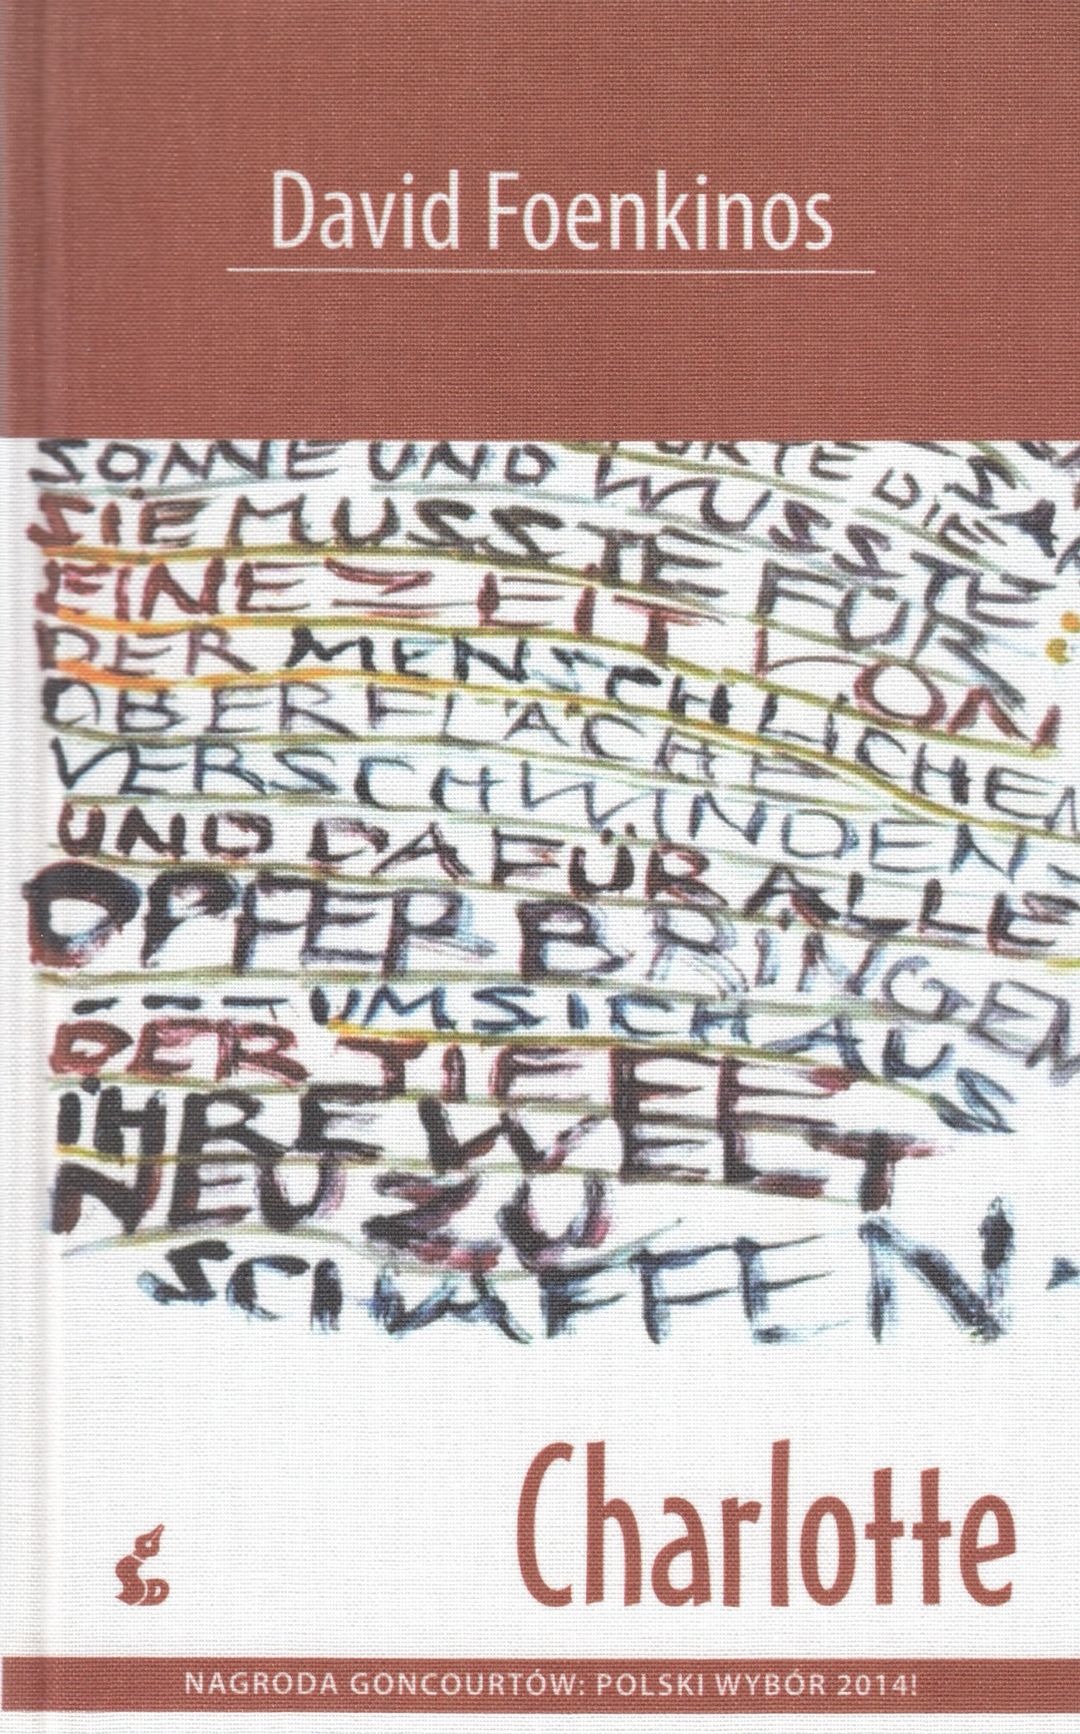 David Foenkinos
SONNE UND WUSSTE
SIE MUSSTE FÜR
EINE ZEIT VON
DER MENSCHLICHEN
OBERFLÄCHE
VERSCHWINDEN
UND DAFÜR ALLE
OPFER BRINGEN
UM SICH AUS
DER TIEFE
IHRE WELT
NEU ZU
SCHAFFEN
Charlotte
SD
NAGRODA GONCOURTÓW: POLSKI WYBÓR 2014!